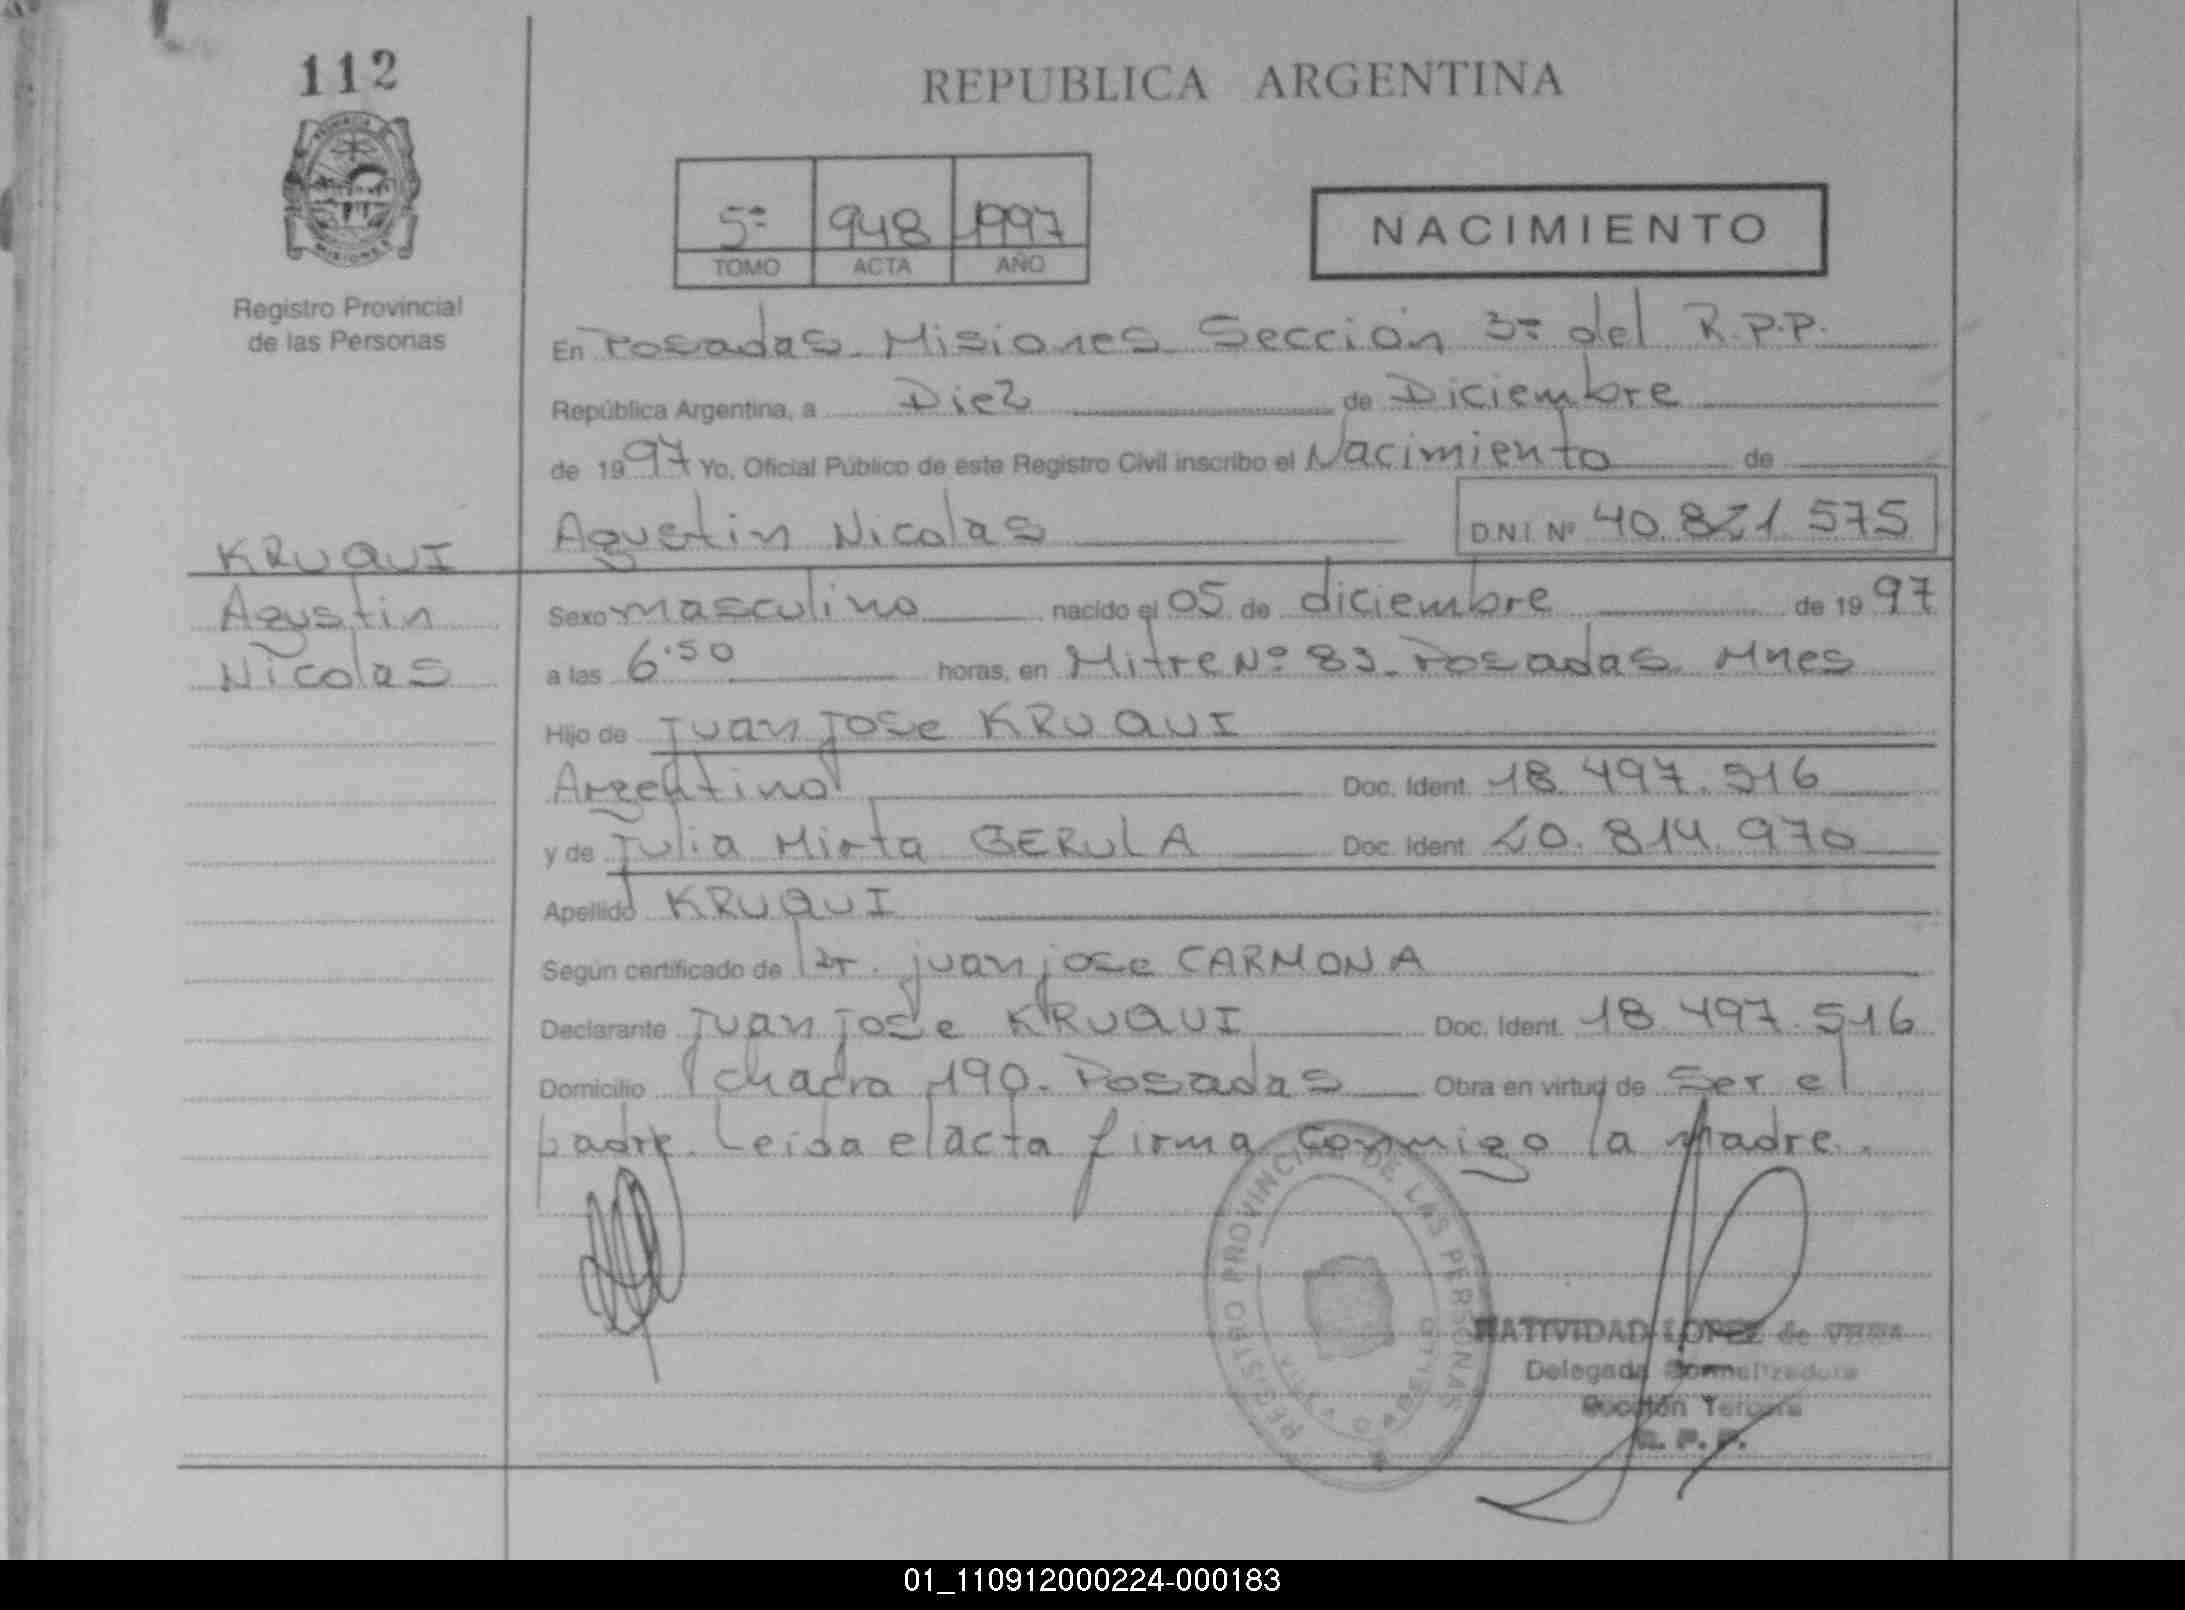 112
REPUBLICA ARGENTINA
5ª 948 1997
TOMO ACTA AÑO
NACIMIENTO
Registro Provincial
de las Personas
En Posadas Misiones Sección 3ª del R.P.P.
República Argentina, a Diez de Diciembre
de 1997 Yo, Oficial Público de este Registro Civil inscribo el Nacimiento de
Agustin Nicolas D.N.I. Nº 40.821.575
KRUQUI
Agustin
Nicolas
Sexo masculino nacido el 05 de diciembre de 1997
a las 6.50 horas, en Mitre Nº 83. Posadas Mnes
Hijo de Juan Jose KRUQUI
Argentino Doc. Ident. 18.497.516
y de Julia Mirta GERULA Doc. Ident. 20.814.970
Apellido KRUQUI
Según certificado de Dr. juan jose CARMONA
Declarante Juan Jose KRUQUI Doc. Ident. 18.497.516
Domicilio chacra 190. Posadas Obra en virtud de ser el
padre. Leida el acta firma conmigo la madre.
REGISTRO PROVINCIAL DE LAS PERSONAS
NATIVIDAD LOPEZ de
Delegada
Sección Tercera
R. P. P.
01_110912000224-000183